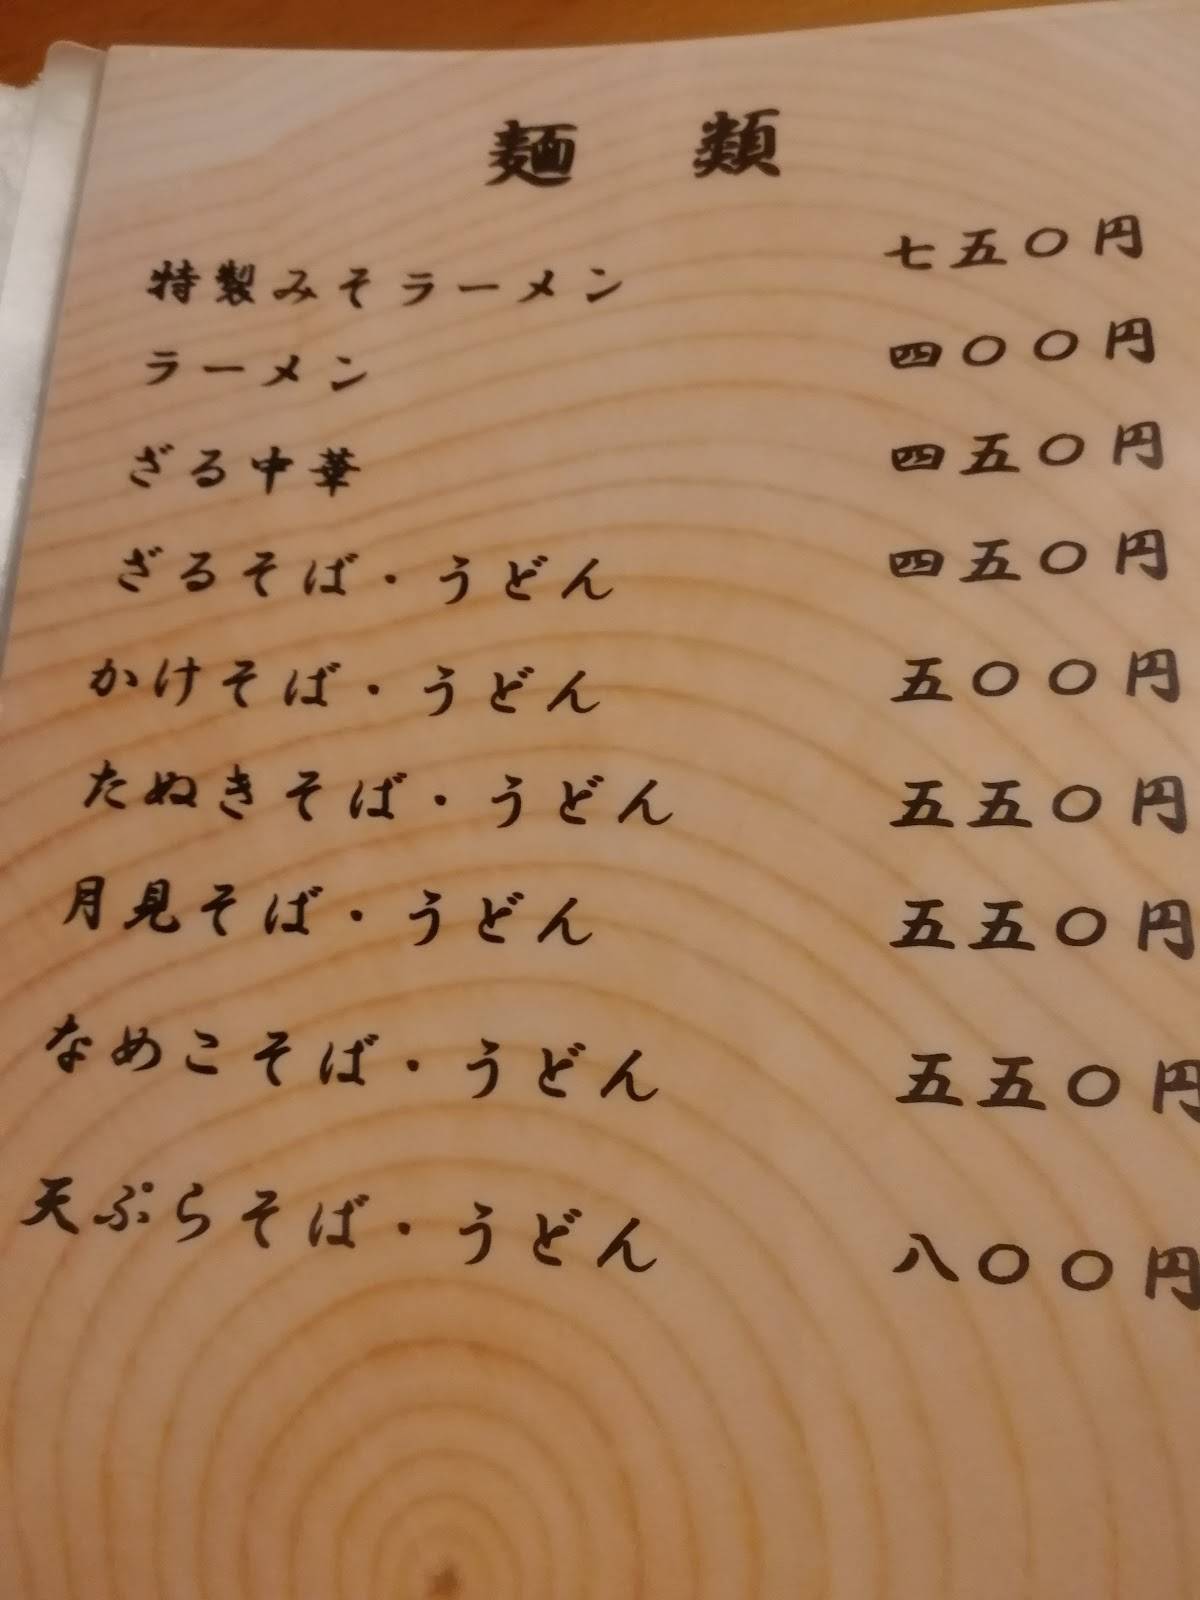 麺類
特製みそラーメン 七五〇円
ラーメン 四〇〇円
ざる中華 四五〇円
ざるそば・うどん 四五〇円
かけそば・うどん 五〇〇円
たぬきそば・うどん 五五〇円
月見そば・うどん 五五〇円
なめこそば・うどん 五五〇円
天ぷらそば・うどん 八〇〇円